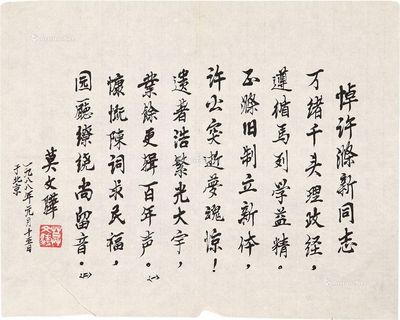 悼许滌新同志
万绪千头理政经，
遵循马列学益精。
正滌旧制立新体，
许公突逝梦魂惊！
遗著浩繁光大宇，
业馀更辑百年声。(一)
慷慨陈词求民福，
园厅缭绕尚留音。(二)
莫文骅
一九八八年元月十五日
于北京